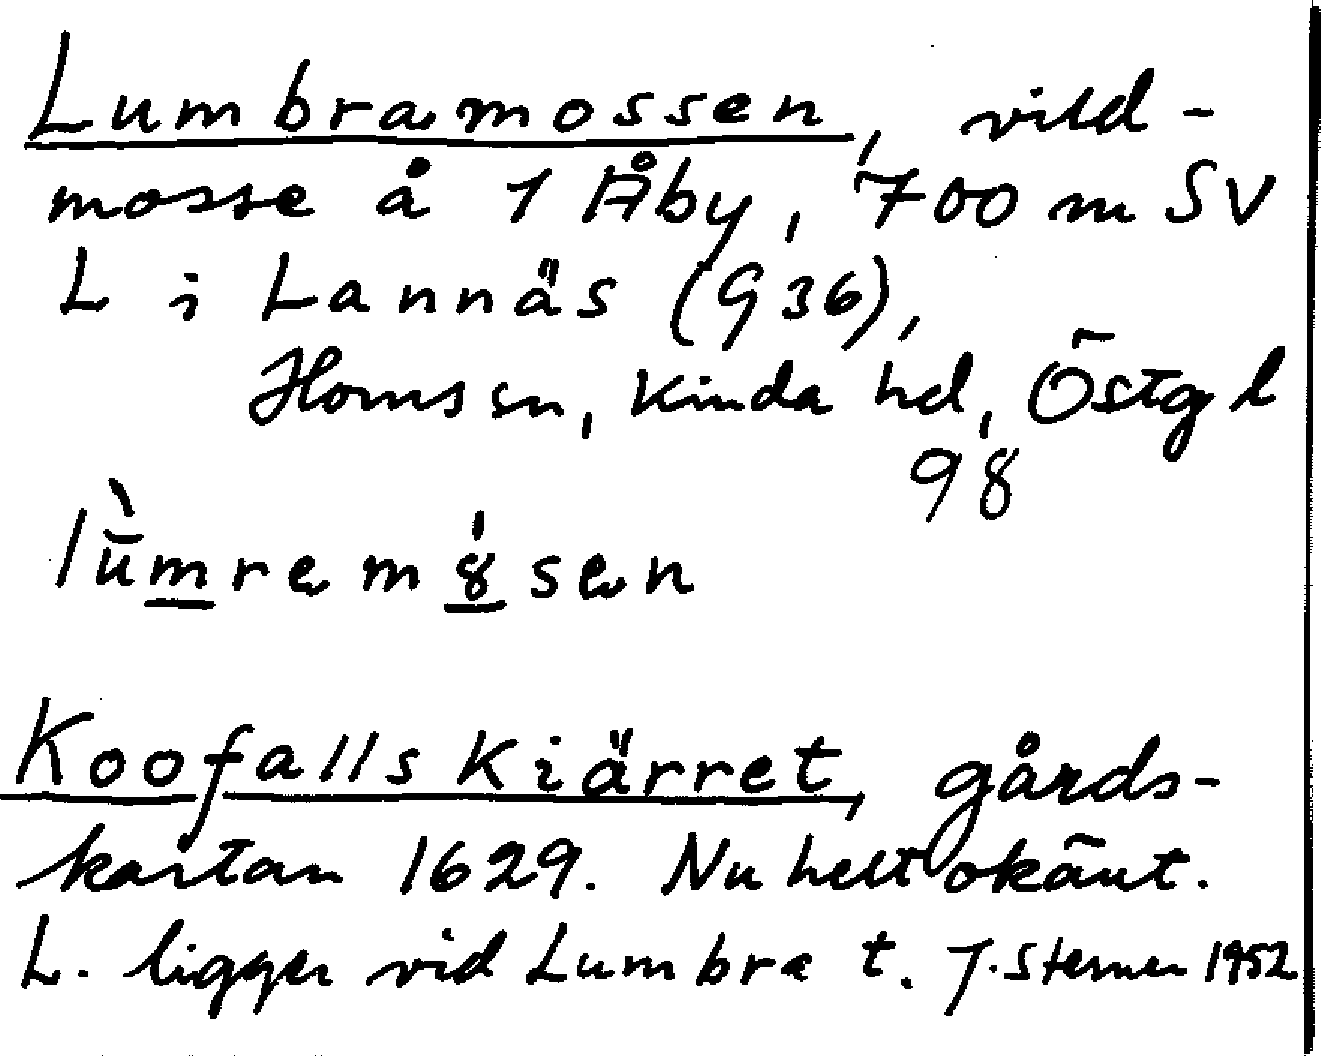 Lumbramossen, vild-
mosse å 1 Åby, 700 m SV
L i Lannäs (9 36),
Horns sn, Kinda hd, Östgl
98
Koofalls Kiärret, gårds-
kartan 1629. Nu helt okänt.
L. ligger vid Lumbra t. J. Sterner 1952